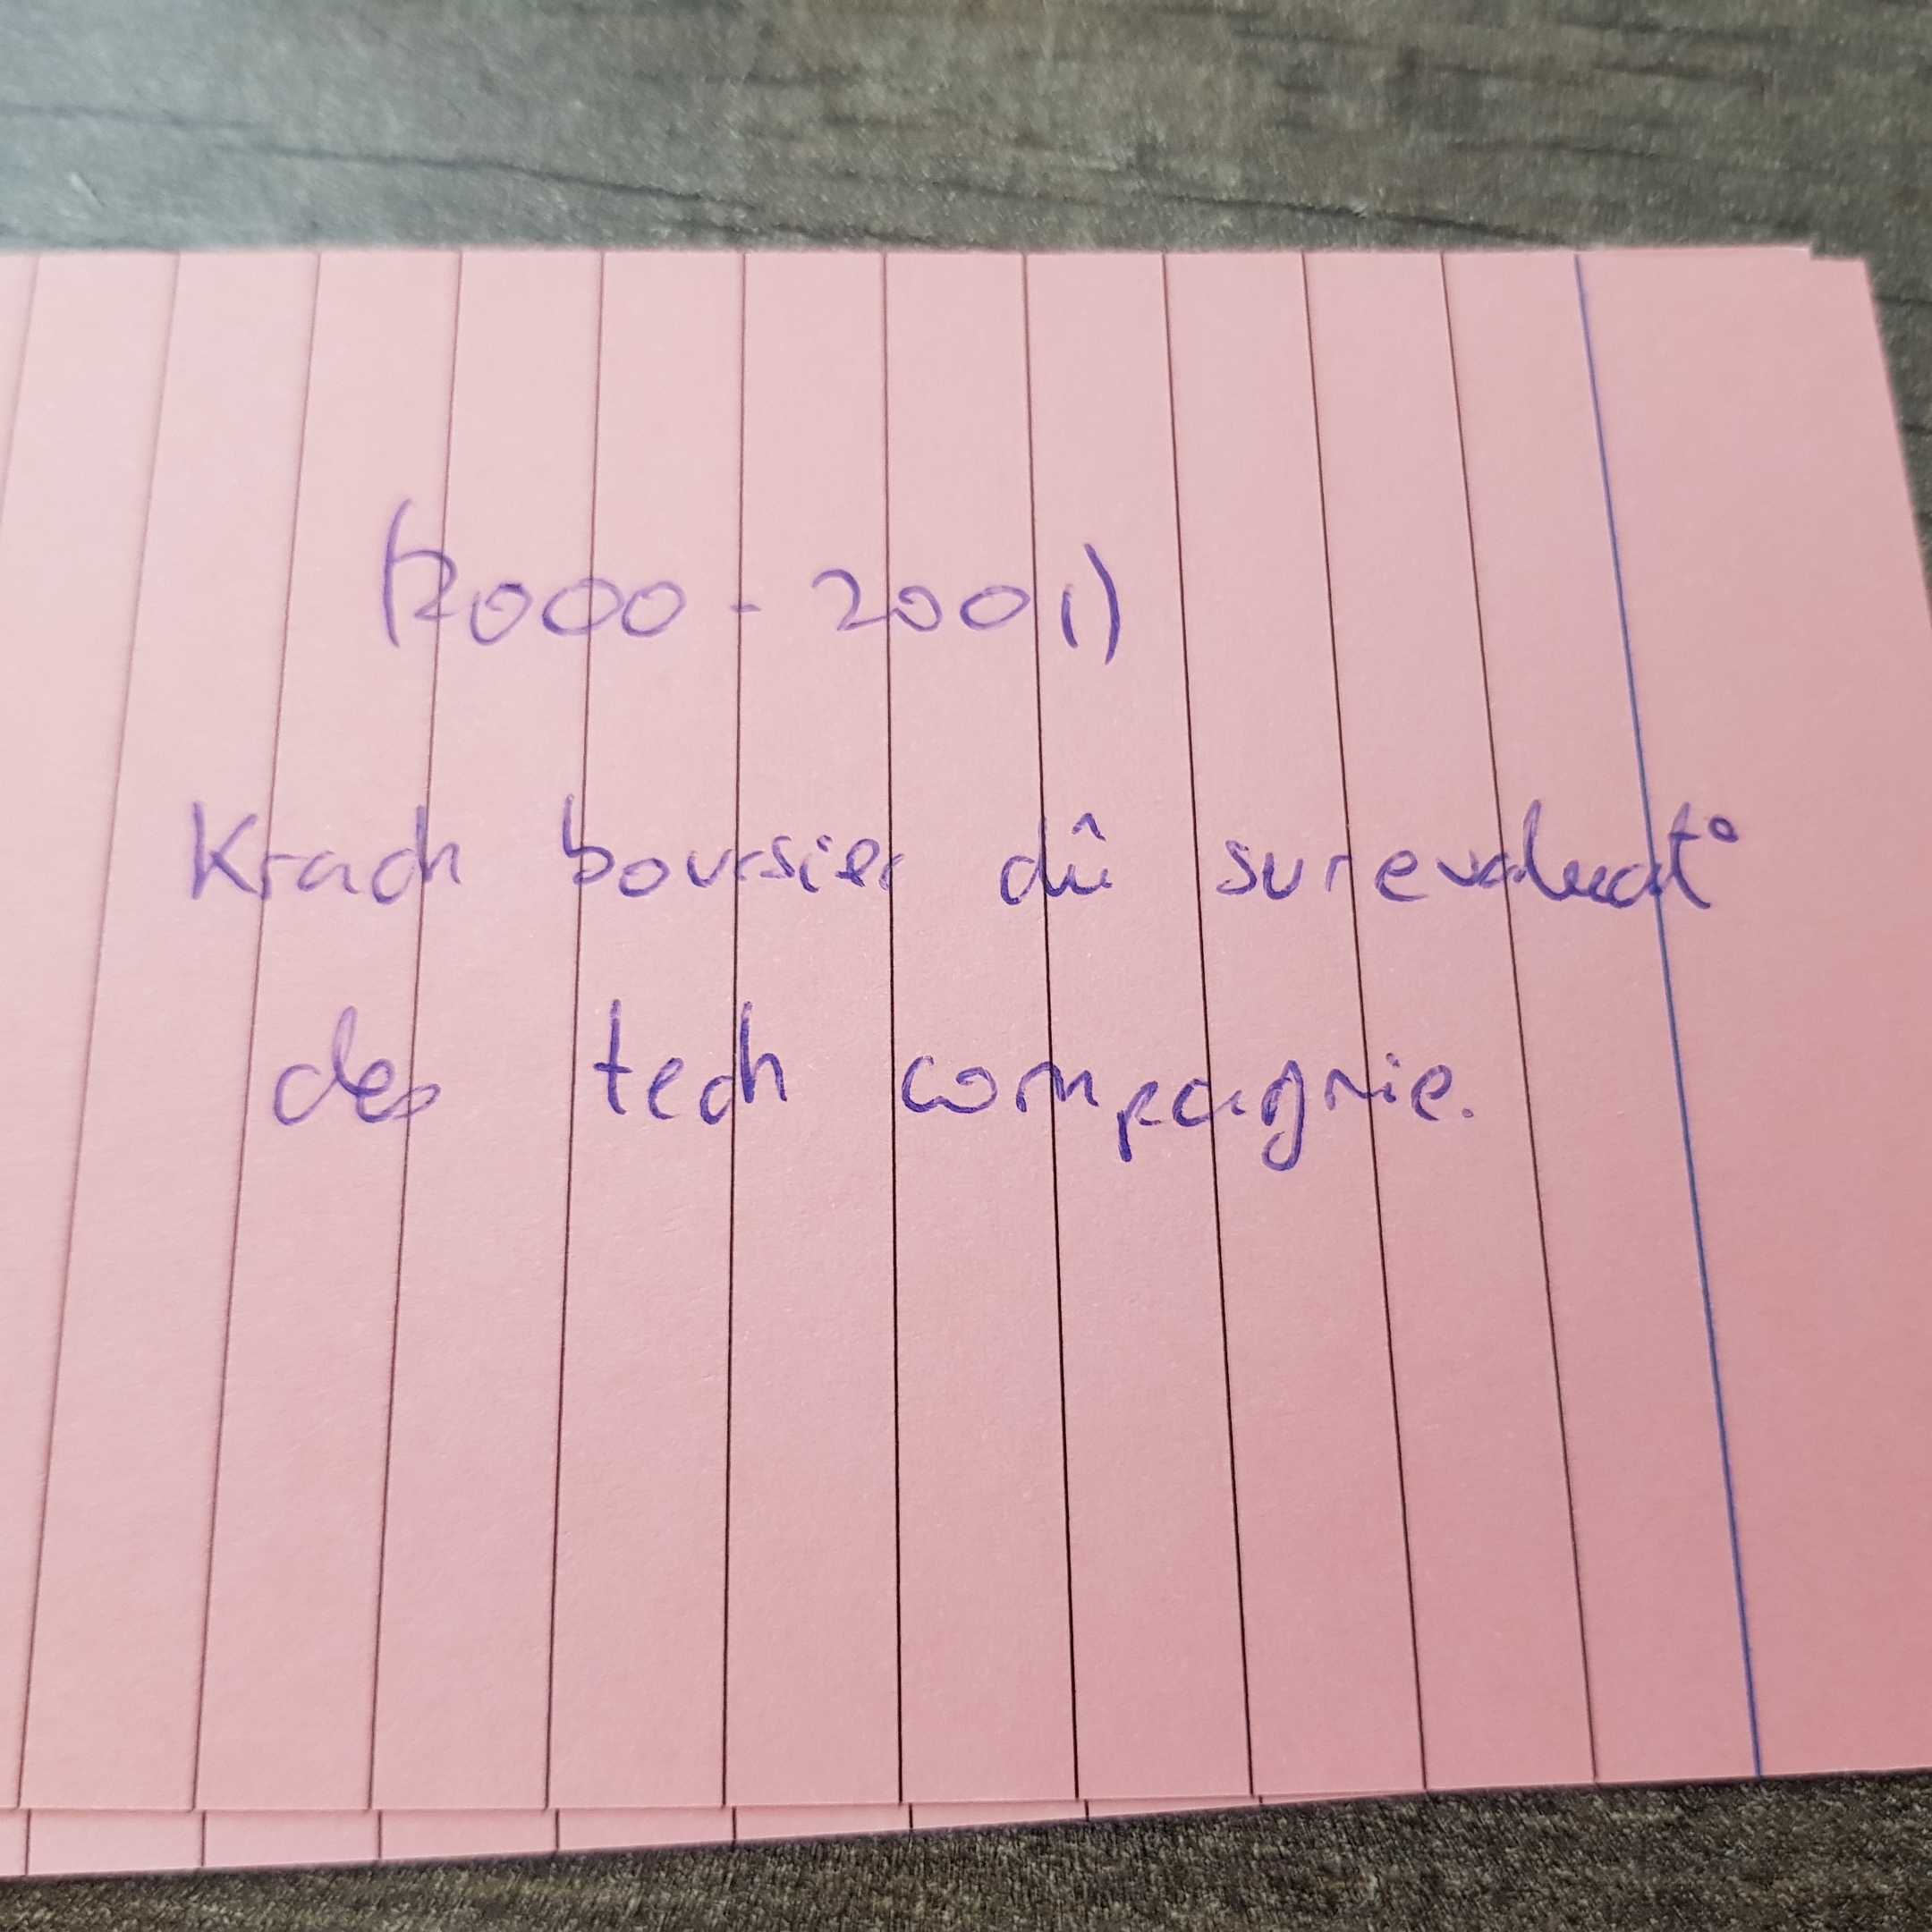 (2000 - 2001)
Krach boursier dû surevaluat°
des tech compagnie.